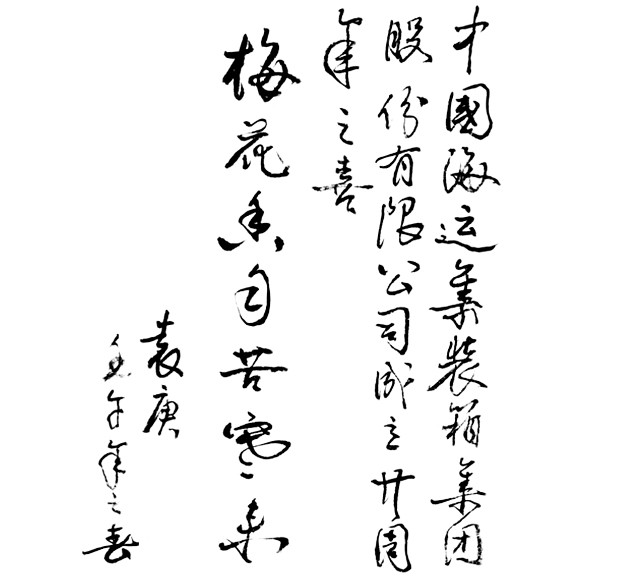 中國海运集装箱集团
股份有限公司成立廿周
年之喜
梅花香自苦寒来
袁庚
午年之春